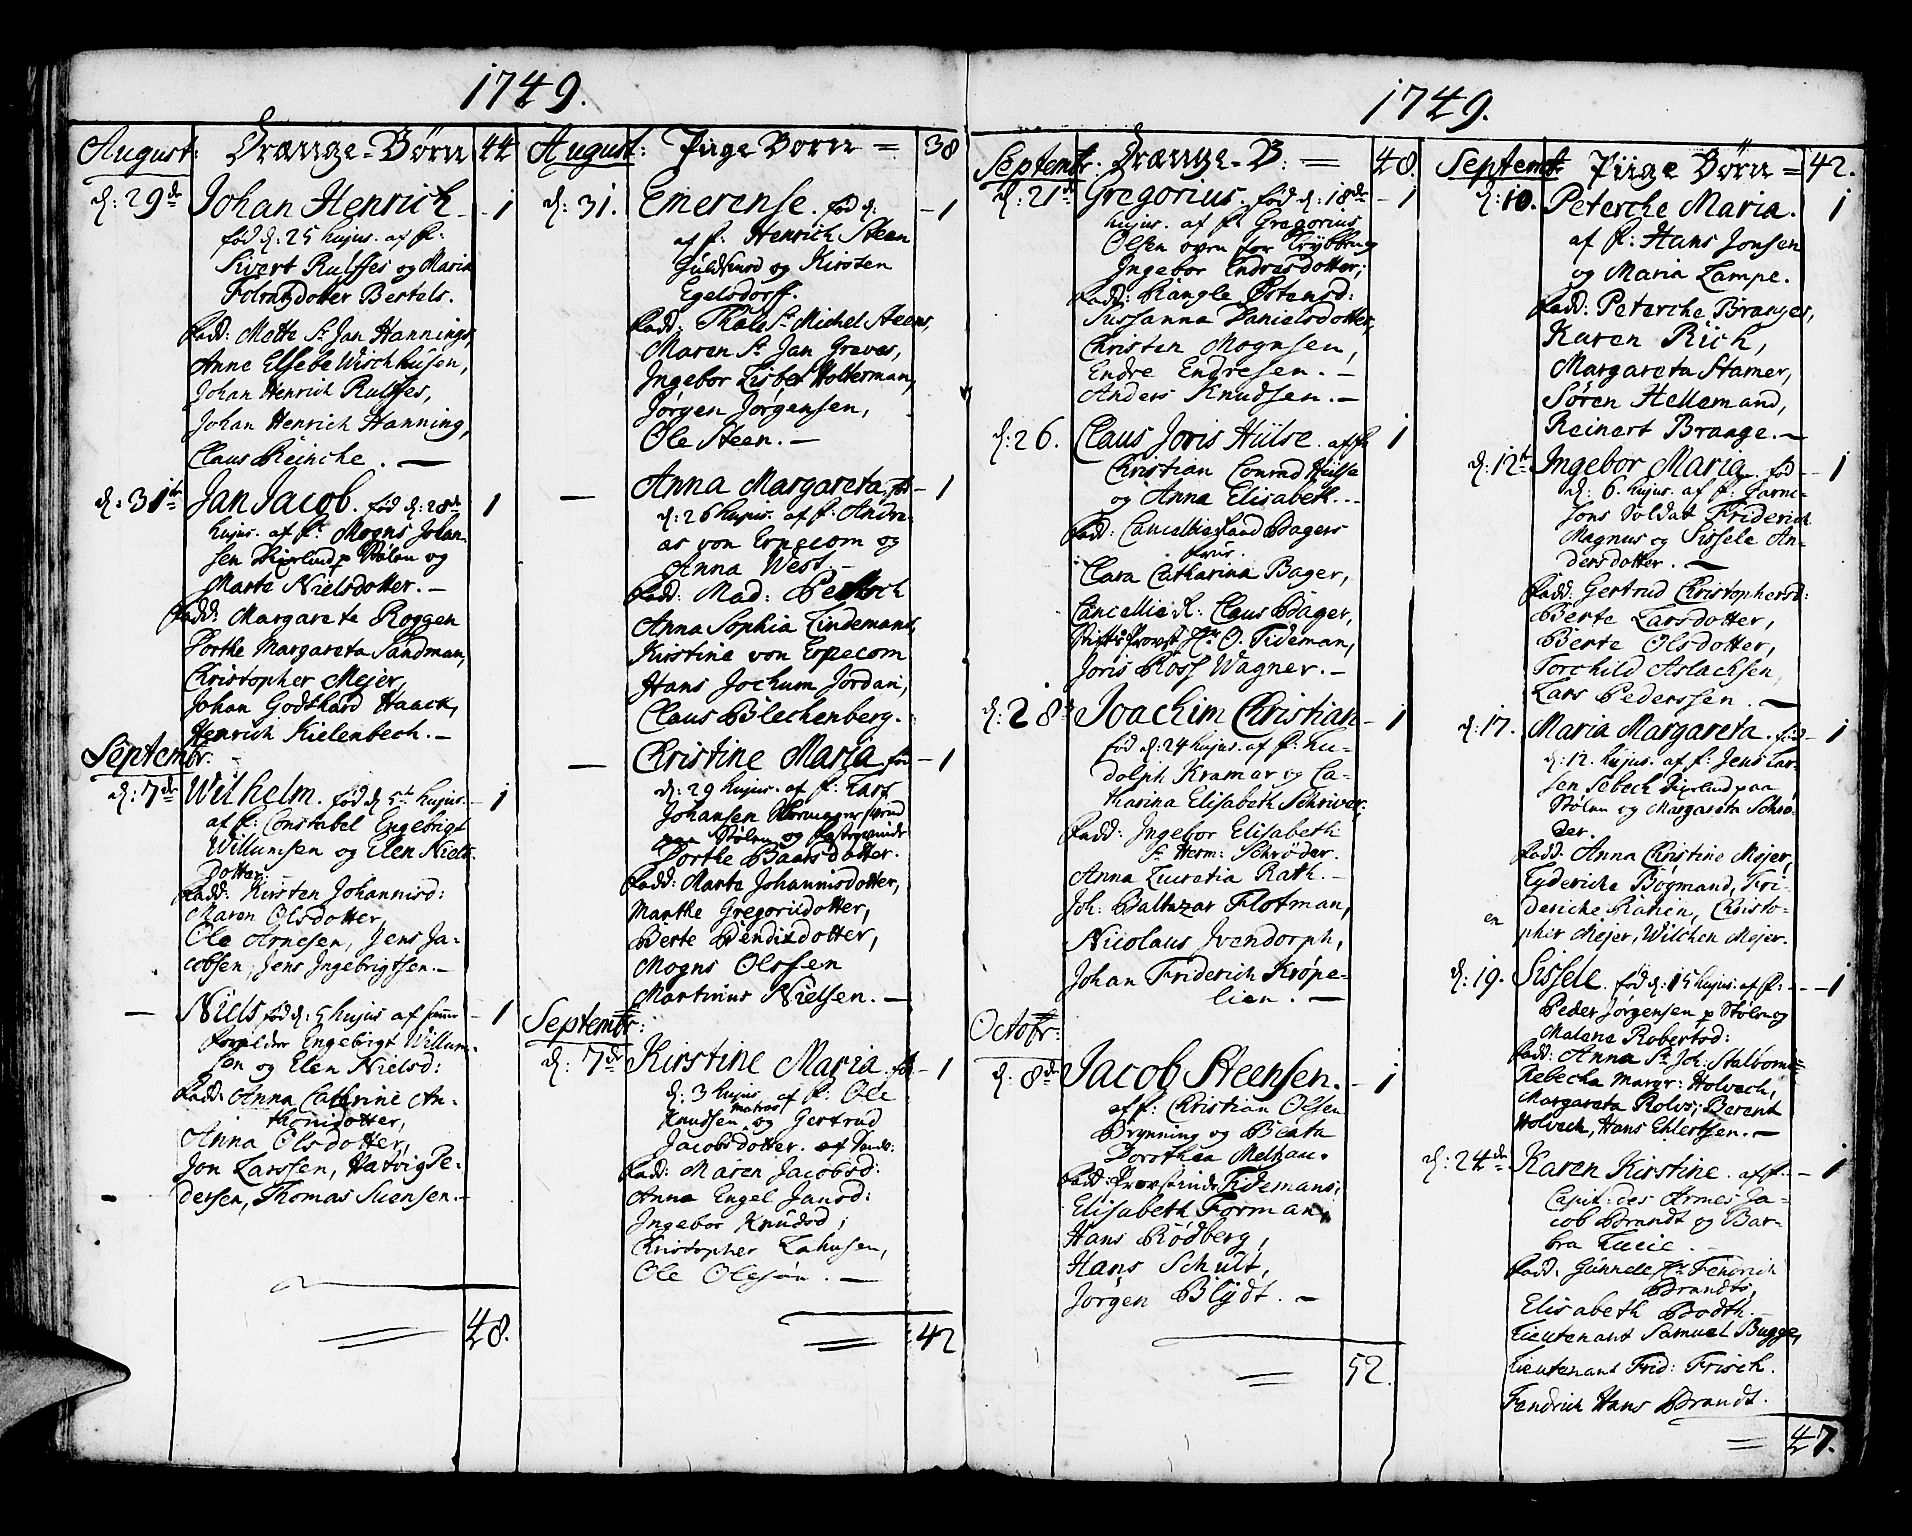 1749.
August: Drænge-Børn 44
d: 29de Johan Henrich - 1
fød d: 25 hujus. af f:
Sivert Rulffes og Maria
Folratzdotter Bertels.
Fadd: Mette Sr Jan Hannings,
Anne Elsebe Wischhusen,
Johan Henrich Rulffes,
Johan Henrich Hanning,
Claus Reinche. —
d: 31te Jan Jacob. fød d: 28de 1
hujus. af f: Mogns Johan-
sen p Stølen og
Marte Nielsdotter. —
Fadd: Margareta Roggen
Dorthe Margareta Sandman,
Christopher Mejer,
Johan Godthard Haack,
Henrich Kielenbech. —
Septembr:
d: 7de Wilhelm. fød d 5t hujus. - 1
af f: Constabel Engebrigt
Willumsen og Elen Niels-
dotter.
Fadd: Kirsten Johannisd:
Maren Olsdotter,
Ole Arnesen, Jens Ja-
cobsen, Jens Ingebrigtsen. —
— Niels fød d: 5 hujus af samme - 1
forælder Engebrigt Willum-
sen og Elen Nielsd:
Fadd: Anna Cathrine An-
thonidotter,
Anna Olsdotter,
Jon Larssen, Hatvig Pe-
dersen, Thomas Suensen. —
48.
August: Piige Børn = 38
d: 31. Emerense. fød d: - 1
af f: Henrich Steen
Guldsmed og Kirsten
Egelsdorff.
Fadd: Thale Sr Michel Steens,
Maren Sr Jan Greves,
Ingebor Lisbet Holterman,
Jørgen Jørgensen,
Ole Steen. —
— Anna Margareta, fød - 1
d: 26 hujus. af f: Andre-
as von Erpecom og
Anna West. —
Fadd: Mad:
Anna Sophia Lindemans,
Kirstine von Erpecom
Hans Jochum Jordan,
Claus Blechenberg.
— Christine Maria fød - 1
d: 29 hujus. af f: Lars
Johansen
paa Stølen og
Dorthe Baarsdotter.
Fadd: Marte Johannisdotter,
Marthe Gregorisdotter,
Berte Bendixdotter,
Mogns Olssen
Martinus Nielsen. —
Septembr:
d: 7de Kirstine Maria. fød - 1
d: 3 hujus af f: Ole
Knudssen matros og Gertrud
Jacobsdotter.
Fadd: Maren Jacobsd:
Anna Engel Jansd:
Ingebor Knudsd;
Christopher Lahusen,
Ole Olesøn. —
42
1749.
Septembr: Drænge-B: = 48.
d: 21de Gregorius. fød d: 18de - 1
hujus. af f: Gregorius
Olsen
Ingebor Endresdotter;
Fadd: Rangle Østensd:
Sussanna Danielsdotter,
Christen Mognsen,
Endre Endresen. —
Anders Knudsen. —
d: 26. Claus Joris Hülse. af f: 1
Christian Conrad Hülse
og Anna Elisabeth. —
Fadd: Cancellieraad Bagers
frue.
Clara Catharina Bager,
Cancellie r. Claus Bager,
Stifts Provst Hr O. Tideman,
Joris Ross Wagner. —
d: 28 Joachim Christian - 1
fød d: 24 hujus. af f: Lu-
dolph Kramer og Ca-
tharina Elisabeth Schriver.
Fadd: Ingebor Elisabeth
Sr Herm: Schrøder.
Anna Lucretia Rath. —
Joh: Baltazar Flotman,
Nicolaus Ivendorph,
Johan Friderich Krøpe-
lien. —
Octobr:
d: 8de Jacob Steensen. - 1
af f: Christian Olsen
Brynning og Beata
Dorothea Melhau.
Fadd: Provstinde Tidemans,
Elisabeth Forman,
Hans Rødberg,
Hans Schult,
Jørgen Blydt. —
52.
Septembr: Piige Børn = 42.
d: 10. Peterche Maria. 1
af f: Hans Jonsen
og Maria Lampe.
Fadd: Peterche Branges,
Karen Rich,
Margareta Stamer,
Søren Hellemand,
Reinert Brange. —
d: 12te Ingebor Maria. fød - 1
d: 6. hujus. af f: Garni-
sons Soldat Friderich
Magnus og Sissele An-
dersdotter. —
Fadd: Gertrud Christophersd:
Berte Larsdotter,
Berte Olsdotter,
Torchild Aslachsen,
Lars Pederssen. —
d: 17. Maria Margareta. fød - 1
d: 12. hujus. af f: Jens Lar-
sen Sebech paa
Stølen og Margareta Schrø-
der.
Fadd: Anna Christine Mejer,
Lyderiche Bøgmand, Fri-
deriche Rahen, Christo-
pher Mejer, Wilchen Mejer.
d: 19. Sissele. fød d: 15 hujus. af f: - 1
Peder Jørgensen p Stølen og
Malene Robertsd:
Fadd: Anna Sr Joh: Stalvoms
Rebecha Margr: Holvech,
Margareta Rolvs; Berent
Holvech, Hans Ehlertsen. —
d: 24de Karen Kirstine. af f: - 1
Capit: des Armes Ja-
cob Brandt og Bar-
bra Lucie. —
Fadd: Gunnele Sr Fendrich
Brandts,
Elisabeth Bodth. —
Lieutenant Samuel Bugge,
Lieutenant Frid: Frisch.
Fendrich Hans Brandt.
47.